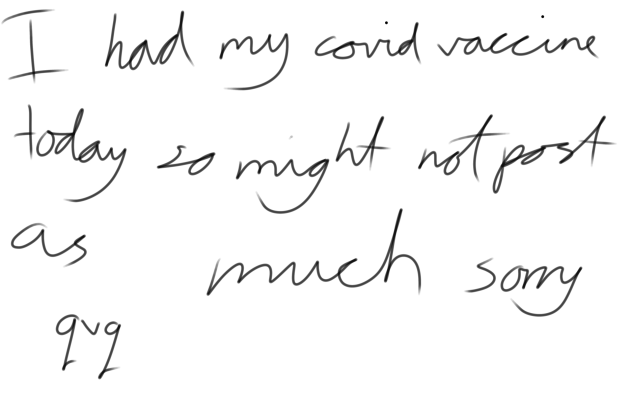 I had my covid vaccine
today so might not post
as much sorry
qvq